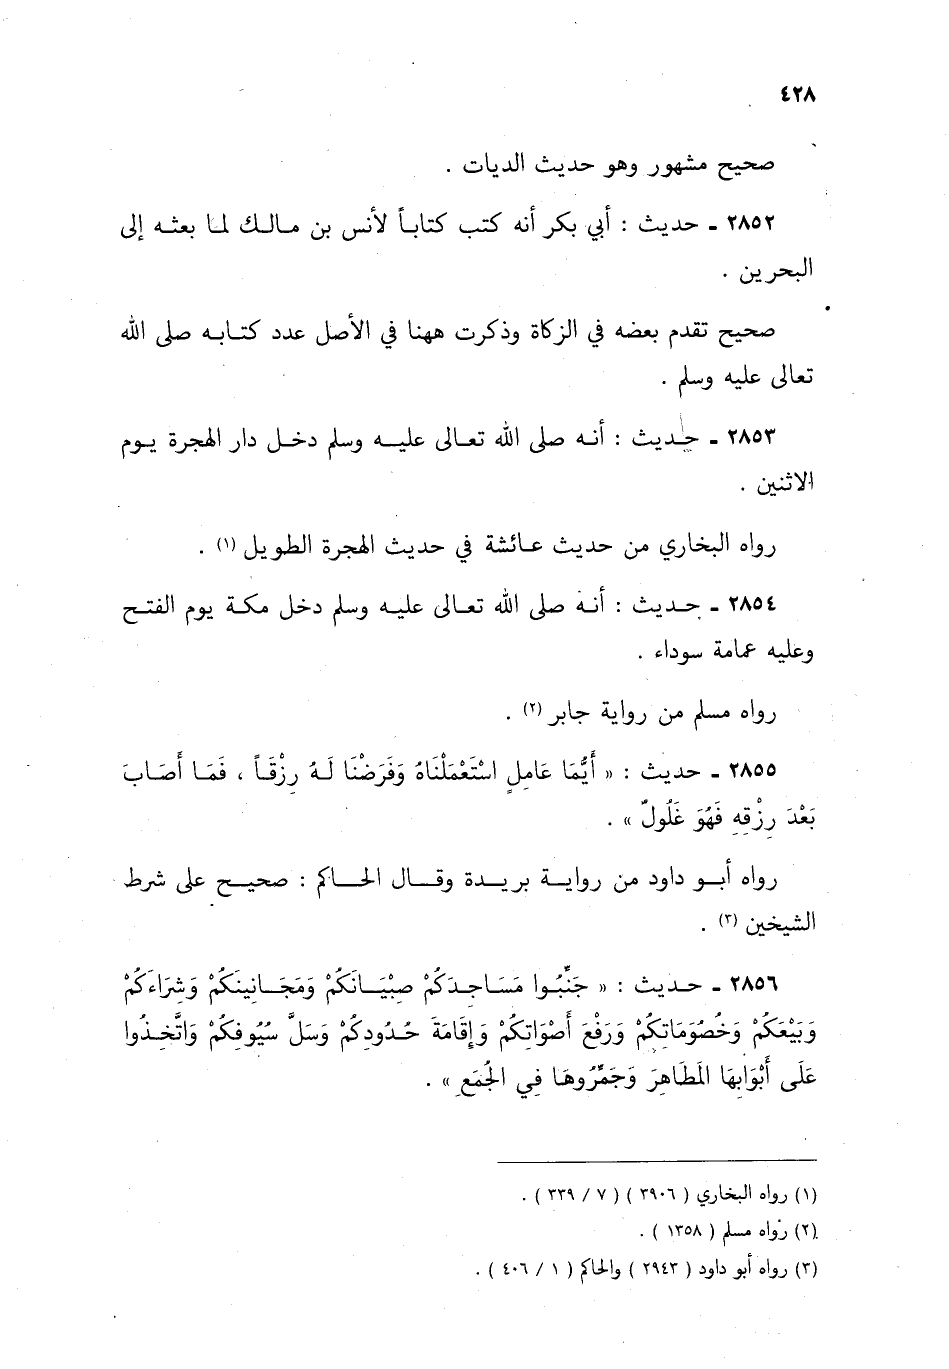 ٤٢٨
صحيح مشهور وهو حديث الديات .
٢٨٥٢ ـ حديث : أبي بكر أنه كتب كتاباً لأنس بن مالك لما بعثه إلى
البحرين .
صحيح تقدم بعضه في الزكاة وذكرت ههنا في الأصل عدد كتابه صلى الله
تعالى عليه وسلم .
٢٨٥٣ ـ حديث : أنه صلى الله تعالى عليه وسلم دخل دار الهجرة يوم
الاثنين .
رواه البخاري من حديث عائشة في حديث الهجرة الطويل (١) .
٢٨٥٤ ـ حديث : أنه صلى الله تعالى عليه وسلم دخل مكة يوم الفتح
وعليه عمامة سوداء .
رواه مسلم من رواية جابر (٢) .
٢٨٥٥ ـ حديث : « أَيُّمَا عَامِلٍ اسْتَعْمَلْنَاهُ وَفَرَضْنَا لَهُ رِزْقَاً ، فَمَا أَصَابَ
بَعْدَ رِزْقِهِ فَهُوَ غَلُولٌ » .
رواه أبو داود من رواية بريدة وقال الحاكم : صحيح على شرط
الشيخين (٣) .
٢٨٥٦ ـ حديث : « جَنِّبُوا مَسَاجِدَكُمْ صِبْيَانَكُمْ وَمَجَانِينَكُمْ وَشِرَاءَكُمْ
وَبَيْعَكُمْ وَخُصُومَاتِكُمْ وَرَفْعَ أَصْوَاتِكُمْ وَإِقَامَةَ حُدُودِكُمْ وَسَلَّ سُيُوفِكُمْ وَاتَّخِذُوا
عَلَى أَبْوَابِهَا المَطَاهِرَ وَجَمِّرُوهَا فِي الجُمَعِ » .
(١) رواه البخاري ( ٣٩٠٦ ) ( ٧ / ٣٣٩ ) .
(٢) رواه مسلم ( ١٣٥٨ ) .
(٣) رواه أبو داود ( ٢٩٤٣ ) والحاكم ( ١ / ٤٠٦ ) .